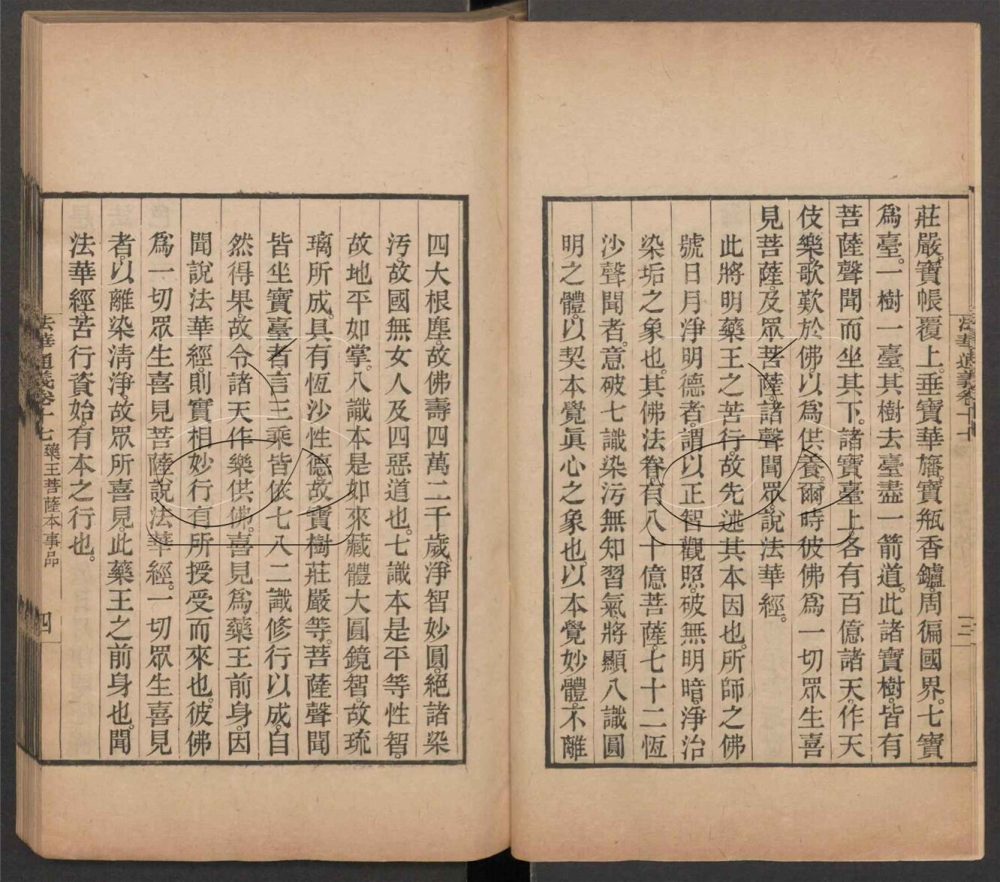 莊嚴。寶帳覆上。垂寶華旛。寶瓶香鑪。周徧國界。七寶
爲臺。一樹一臺。其樹去臺盡一箭道。此諸寶樹。皆有
菩薩聲聞而坐其下。諸寶臺上各有百億諸天。作天
伎樂。歌歎於佛。以爲供養。爾時彼佛爲一切眾生喜
見菩薩及眾菩薩。諸聲聞眾。說法華經。
此將明藥王之苦行。故先述其本因也。所師之佛
號日月淨明德者。謂以正智觀照。破無明暗。淨治
染垢之象也。其佛法眷。有八十億菩薩。七十二恆
沙聲聞者。意破七識染污無知習氣。將顯八識圓
明之體。以契本覺眞心之象也。以本覺妙體。不離
四大根塵。故佛壽四萬二千歲。淨智妙圓。絕諸染
汚。故國無女人及四惡道也。七識本是平等性智。
故地平如掌。八識本是如來藏體大圓鏡智。故琉
璃所成。具有恆沙性德。故寶樹莊嚴等。菩薩聲聞
皆坐寶臺者。言三乘皆依七八二識修行以成。自
然得果。故令諸天作樂供佛。喜見爲藥王前身。因
聞說法華經。則實相妙行有所授受而來也。彼佛
爲一切眾生喜見菩薩說法華經。一切眾生喜見
者。以離染淸淨。故眾所喜見。此藥王之前身也。聞
法華經苦行資始。有本之行也。
法華通義卷十七 藥王菩薩本事品 四